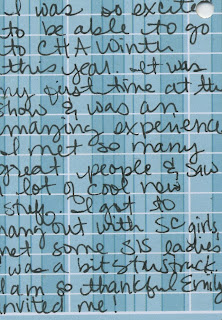 I was so excited
to be able to go
to CHA Winter
this year. It was
my first time at the
show & was an
amazing experience
I met so many
great people & saw
a lot of cool new
stuff. I got to
hang out with SC girls,
met some SIS ladies
I was a bit Starstruck.
I am so thankful Emily
invited me!